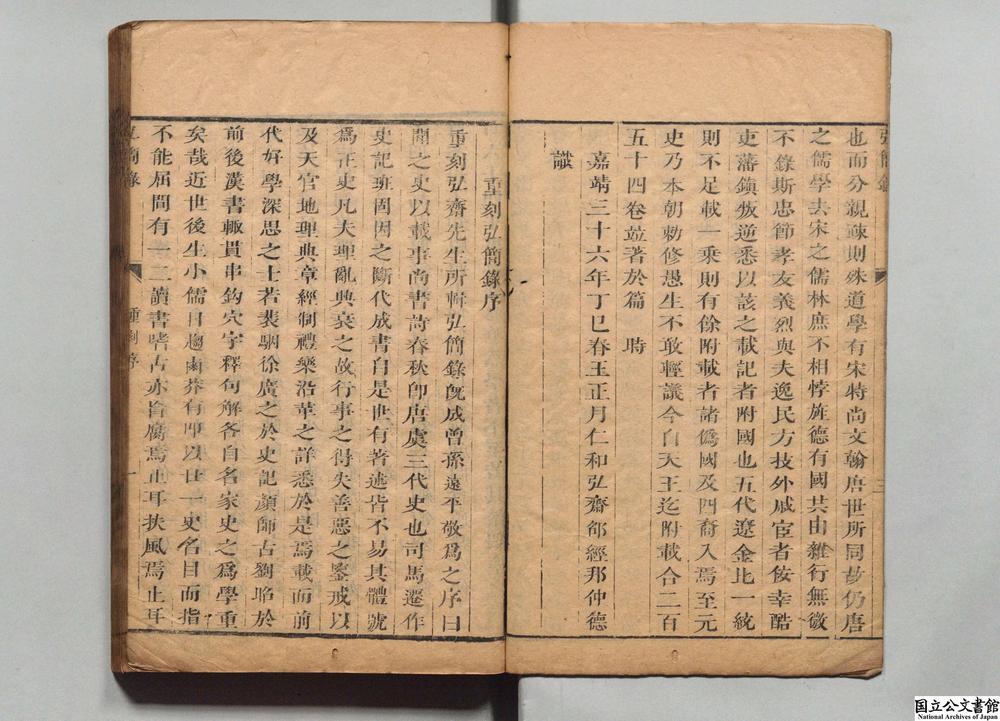 弘簡錄
二
也而分親疎則殊道學有宋特尚文翰唐世所同故仍唐
之儒學去宋之儒林庶不相悖旌德有國共由雜行無徵
不錄斯忠節孝友義烈與夫逸民方技外戚宦者佞幸酷
吏藩鎮叛逆悉以該之載記者附國也五代遼金比一統
則不足載一乘則有餘附載者諸僞國及四裔入焉至元
史乃本朝勅修愚生不敢輕議今自天王迄附載合二百
五十四卷竝著於篇 時
嘉靖三十六年丁巳春王正月仁和弘齋邵經邦仲德
識
重刻弘簡錄序
重刻弘齋先生所輯弘簡錄旣成曾孫遠平敬爲之序曰
聞之史以載事尚書詩春秋卽唐虞三代史也司馬遷作
史記班固因之斷代成書自是世有著述皆不易其體號
爲正史凡夫理亂興衰之故行事之得失善惡之鑒戒以
及天官地理典章經制禮樂沿革之詳悉於是焉載而前
代好學深思之士若裴駰徐廣之於史記顏師古劉昭於
前後漢書輒貫串鈎穴字釋句解各自名家史之爲學重
矣哉近世後生小儒目趨鹵莽有叩以廿一史名目而指
不能屈間有一二讀書嗜古亦旨腐焉止耳扶風焉止耳
弘簡錄
重刻序
一
国立公文書館
National Archives of Japan